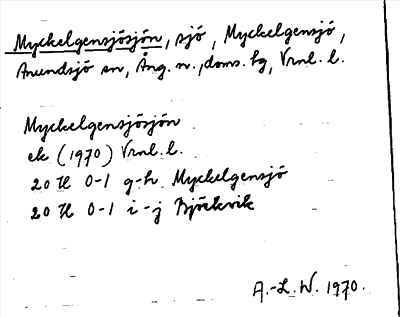 Myckelgensjösjön, sjö, Myckelgensjö,
Anundsjö sn, Ång. n., doms. fg, Vrnl. l.
Myckelgensjösjön
ek (1970) Vrnl. l.
20 H 0-1 g-h Myckelgensjö
20 H 0-1 i-j Björkvik
A.-L. W. 1970.